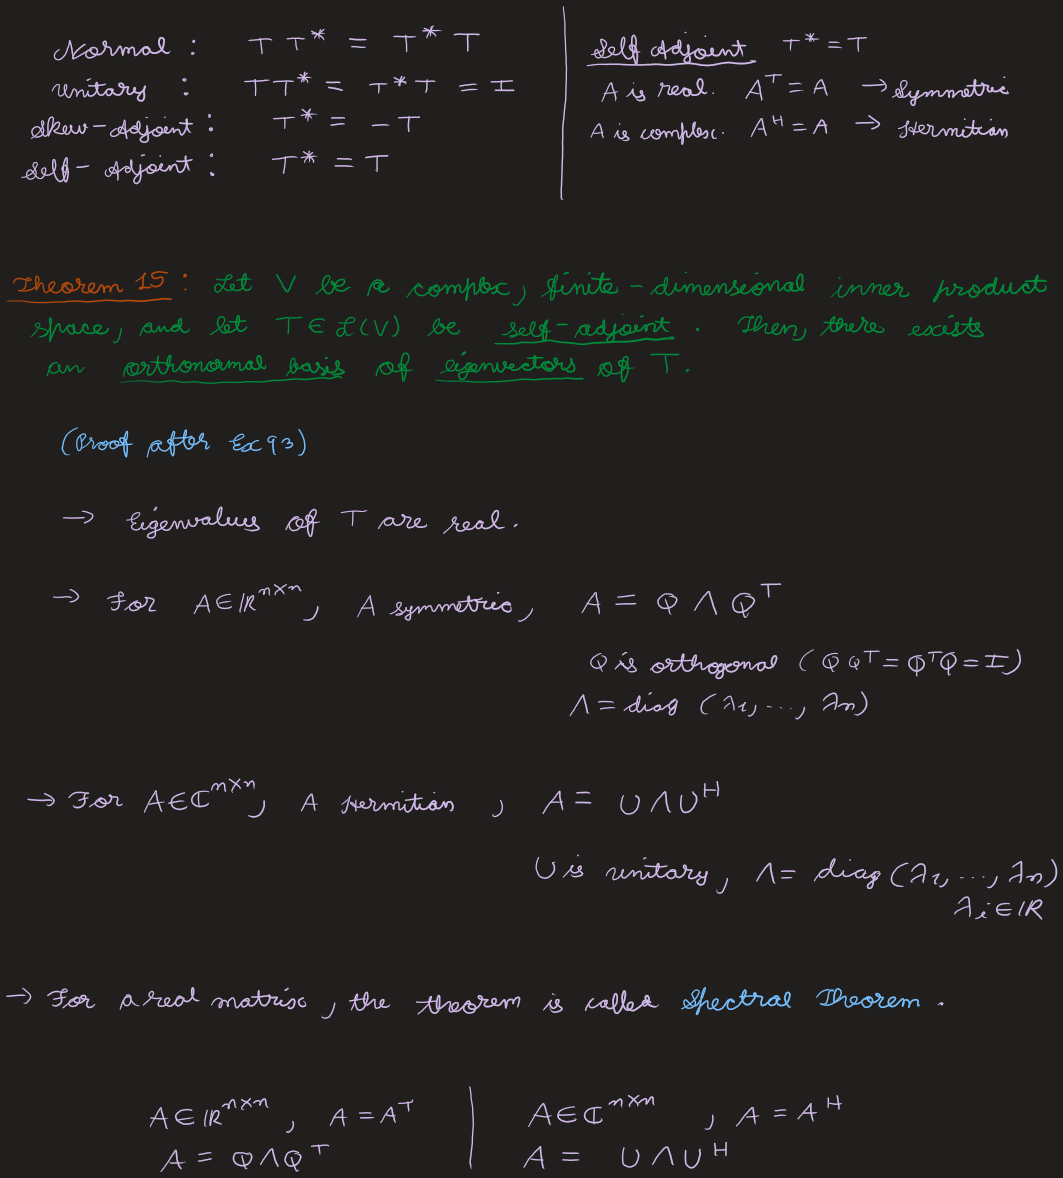 Normal : T T* = T* T
Unitary : T T* = T* T = I
Skew-Adjoint : T* = - T
Self-Adjoint : T* = T
Self Adjoint T* = T
A is real. Aᵀ = A → Symmetric
A is complex. Aᴴ = A → Hermitian
Theorem 15 : Let V be a complex, finite-dimensional inner product
space, and let T ∈ ℒ(V) be self-adjoint. Then, there exists
an orthonormal basis of eigenvectors of T.
(Proof after Ex 93)
→ Eigenvalues of T are real.
→ For A ∈ ℝⁿˣⁿ, A symmetric, A = Q Λ Qᵀ
Q is orthogonal (Q Qᵀ = QᵀQ = I)
Λ = diag (λ₁, ..., λₙ)
→ For A ∈ ℂⁿˣⁿ, A Hermitian, A = U Λ Uᴴ
U is unitary, Λ = diag (λ₁, ..., λₙ)
λᵢ ∈ ℝ
→ For a real matrix, the theorem is called Spectral Theorem.
A ∈ ℝⁿˣⁿ, A = Aᵀ
A = Q Λ Qᵀ
A ∈ ℂⁿˣⁿ, A = Aᴴ
A = U Λ Uᴴ